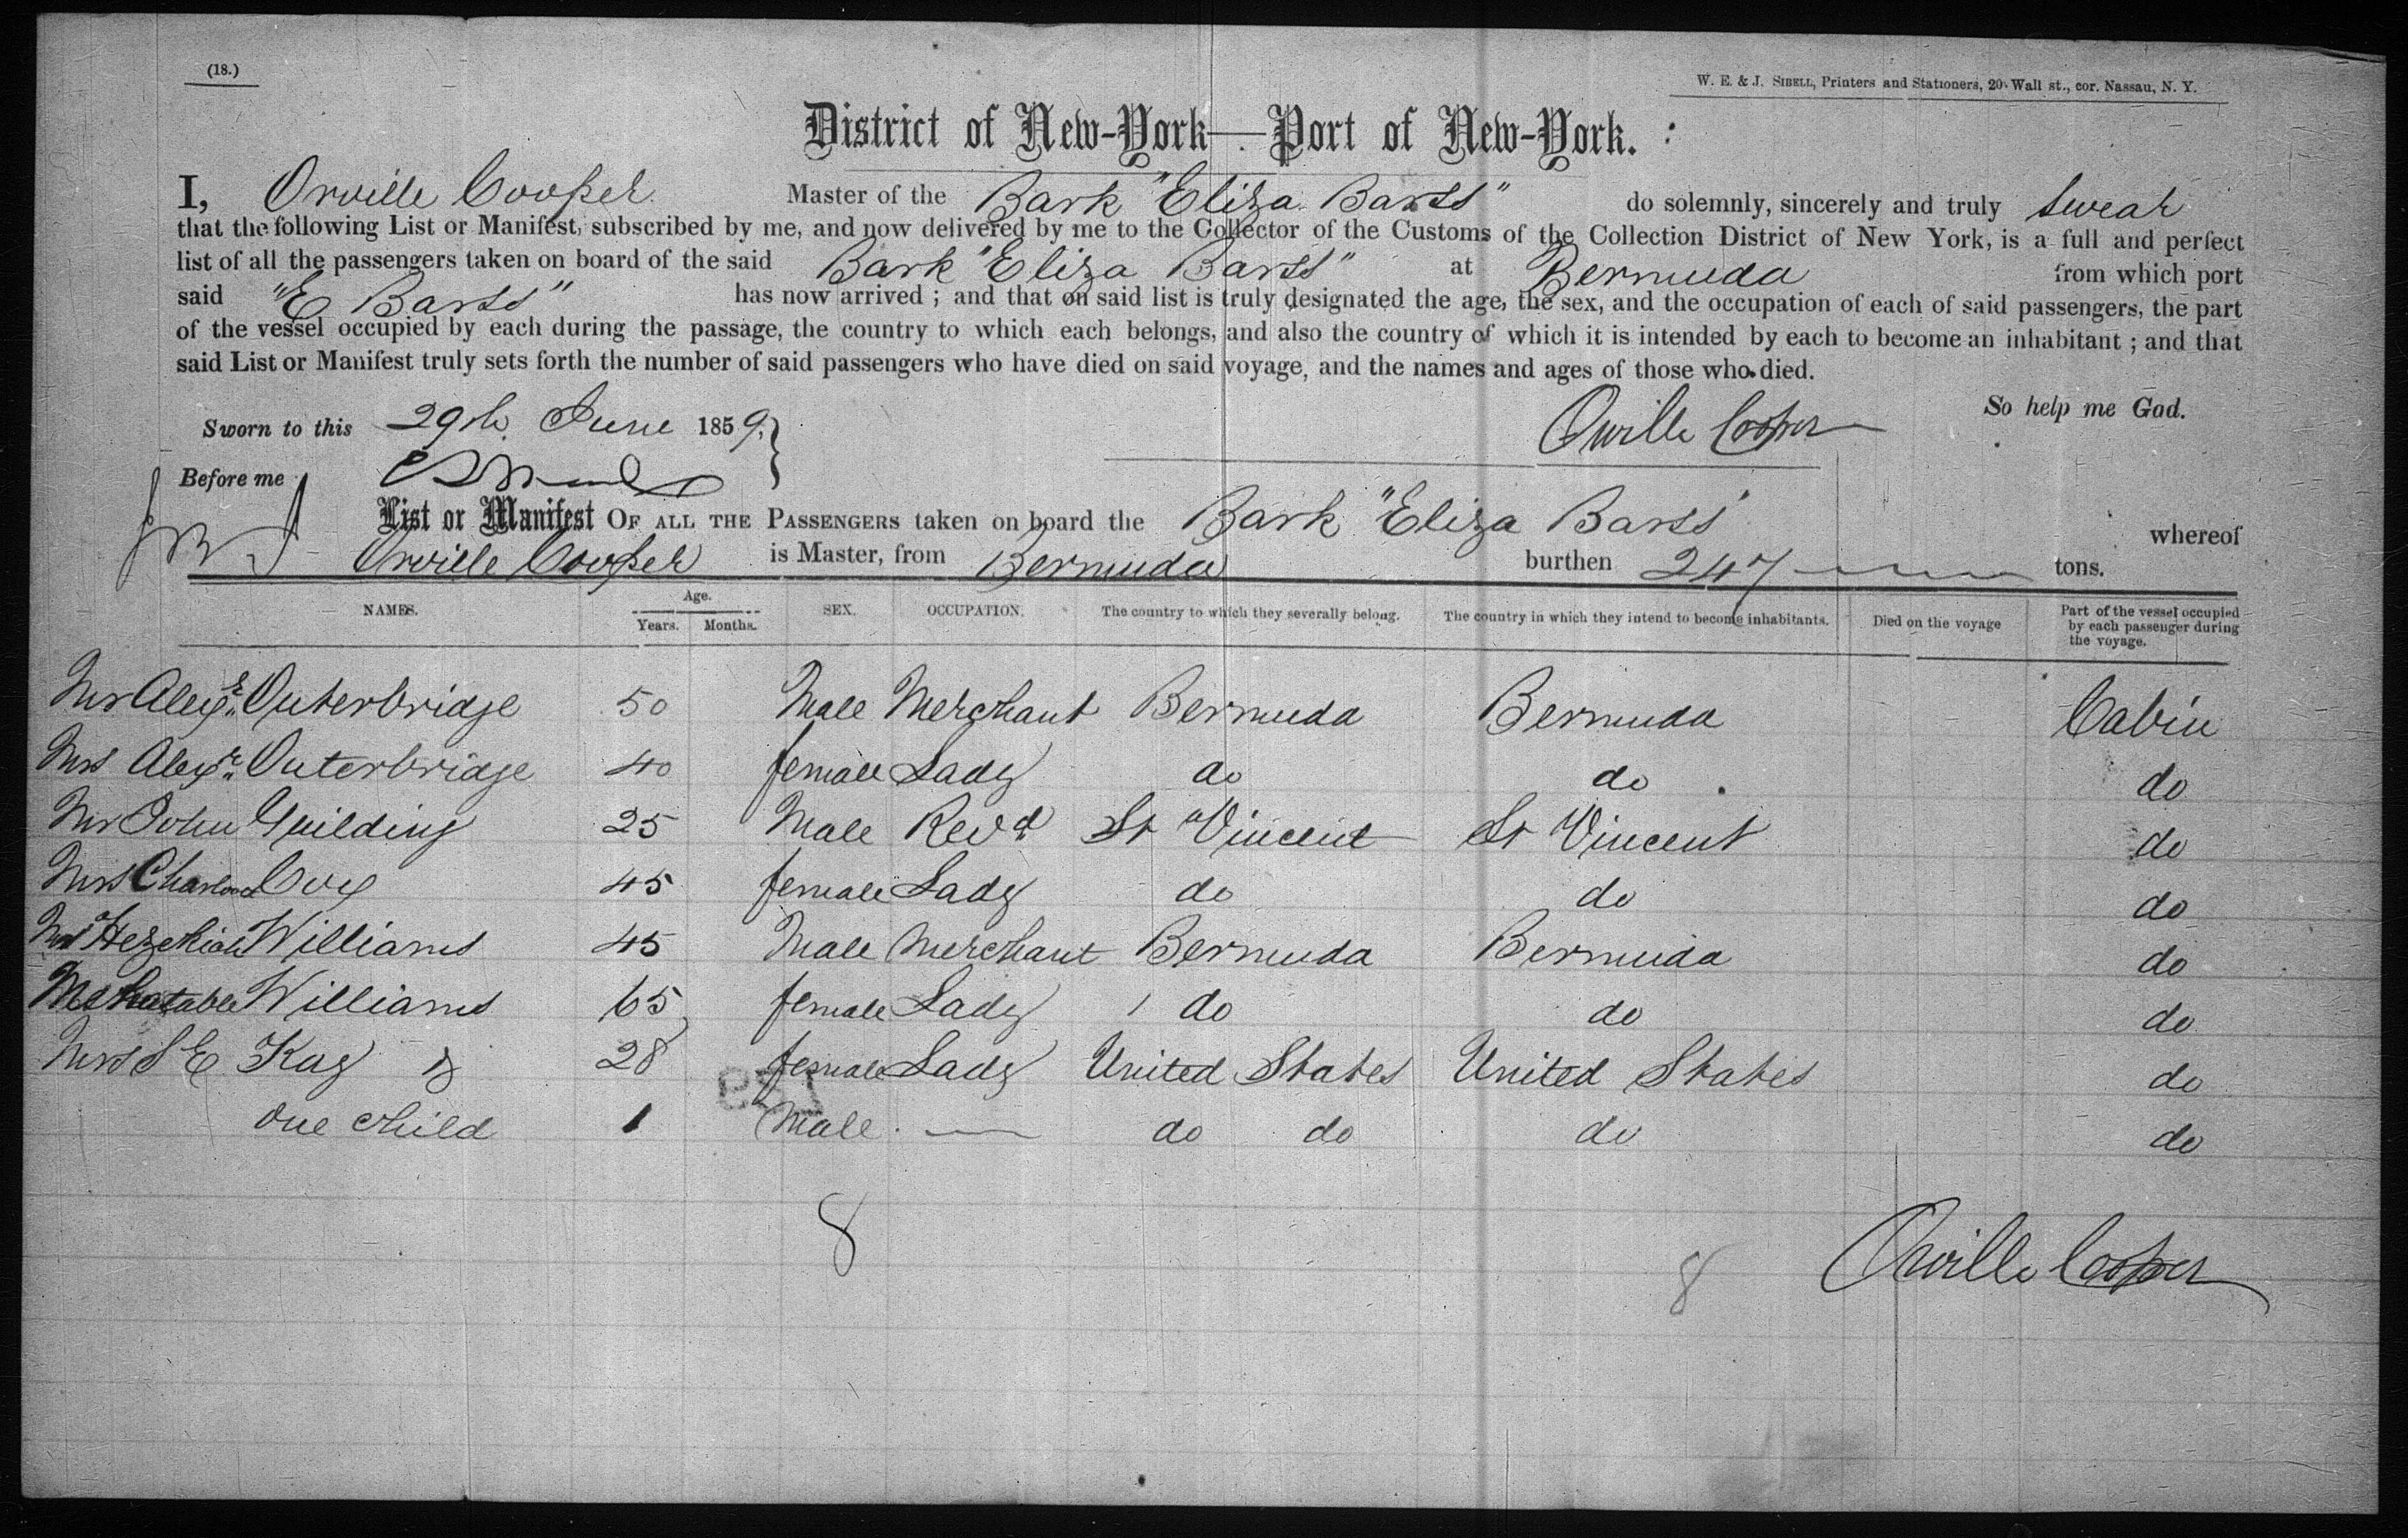 (18.)
W. E. & J. SIBELL, Printers and Stationers, 20 Wall st., cor. Nassau, N. Y.
District of New-York—Port of New-York.
I, Orville Cooper Master of the Bark "Eliza Barss" do solemnly, sincerely and truly swear
that the following List or Manifest, subscribed by me, and now delivered by me to the Collector of the Customs of the Collection District of New York, is a full and perfect
list of all the passengers taken on board of the said Bark "Eliza Barss" at Bermuda from which port
said "E Barss" has now arrived ; and that on said list is truly designated the age, the sex, and the occupation of each of said passengers, the part
of the vessel occupied by each during the passage, the country to which each belongs, and also the country of which it is intended by each to become an inhabitant ; and that
said List or Manifest truly sets forth the number of said passengers who have died on said voyage, and the names and ages of those who died.
So help me God.
Sworn to this 29th June 1859. Orville Cooper
Before me
List or Manifest OF ALL THE PASSENGERS taken on board the Bark "Eliza Barss" whereof
Orville Cooper is Master, from Bermuda burthen 247 tons.
NAMES. Age. Years. Months. SEX. OCCUPATION. The country to which they severally belong. The country in which they intend to become inhabitants. Died on the voyage Part of the vessel occupied by each passenger during the voyage.
Mr Alexr Outerbridge 50 Male Merchant Bermuda Bermuda Cabin
Mrs Alexr Outerbridge 40 female Lady do do do
Mr John Guilding 25 Male Revd St Vincent St Vincent do
Mrs Cox 45 female Lady do do do
Mr Hezekiah Williams 45 Male Merchant Bermuda Bermuda do
Mehetable Williams 65 female Lady do do do
Mrs S E Kay & 28 female Lady United States United States do
one child 1 Male — do do do do
8
8 Orville Cooper